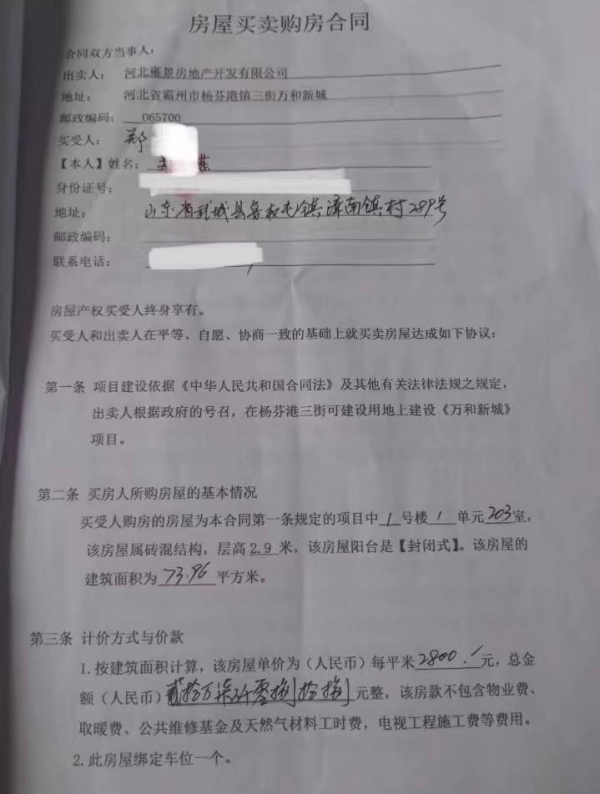 房屋买卖购房合同
合同双方当事人：
出卖人： 河北雍景房地产开发有限公司
地址： 河北省霸州市杨芬港镇三街万和新城
邮政编码： 065700
买受人： 郑
【本人】姓名：
身份证号：
地址： 山东省武城县鲁权屯镇漳南镇村289号
邮政编码：
联系电话：
房屋产权买受人终身享有。
买受人和出卖人在平等、自愿、协商一致的基础上就买卖房屋达成如下协议：
第一条 项目建设依据《中华人民共和国合同法》及其他有关法律法规之规定，
出卖人根据政府的号召，在杨芬港三街可建设用地上建设《万和新城》
项目。
第二条 买房人所购房屋的基本情况
买受人购房的房屋为本合同第一条规定的项目中 1 号楼 1 单元 203 室，
该房屋属砖混结构，层高 2.9 米，该房屋阳台是【封闭式】。该房屋的
建筑面积为 73.96 平方米。
第三条 计价方式与价款
1.按建筑面积计算，该房屋单价为（人民币）每平米 2800 元，总金
额（人民币）贰拾万柒仟零捌拾捌元整，该房款不包含物业费、
取暖费、公共维修基金及天然气材料工时费，电视工程施工费等费用。
2.此房屋绑定车位一个。